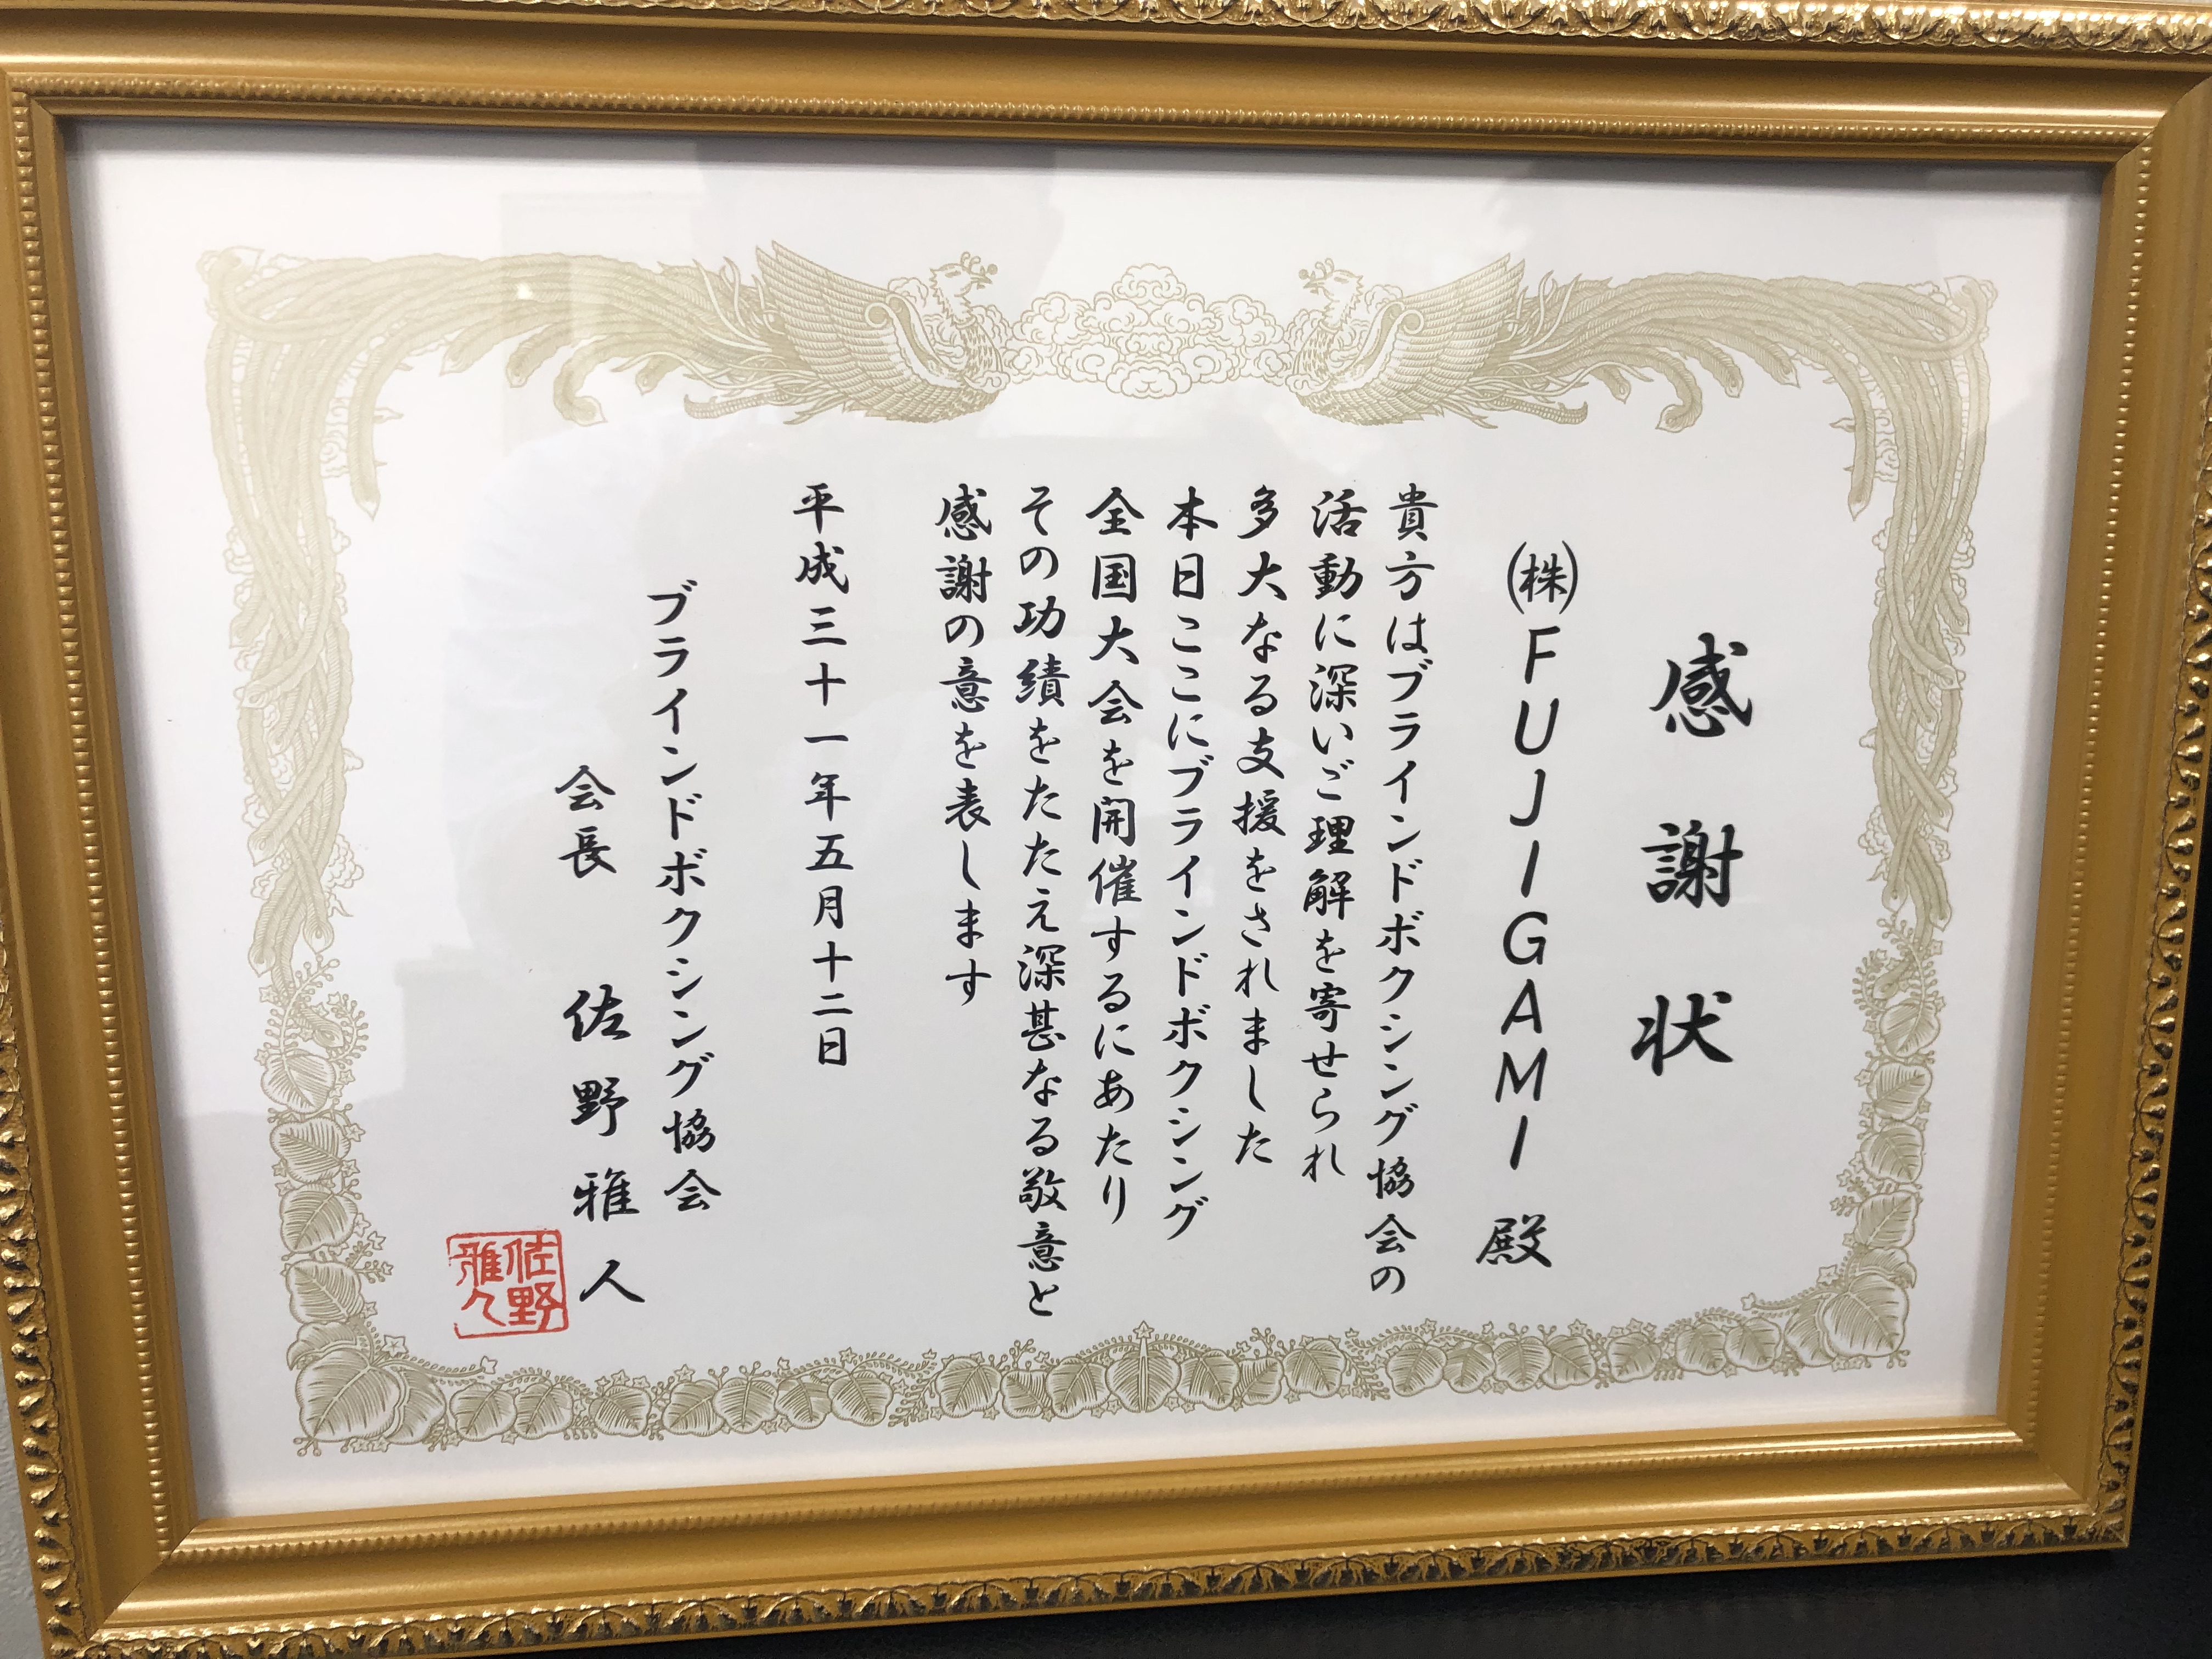 感謝状
㈱FUJIGAMI殿
貴方はブラインドボクシング協会の
活動に深いご理解を寄せられ
多大なる支援をされました
本日ここにブラインドボクシング
全国大会を開催するにあたり
その功績をたたえ深甚なる敬意と
感謝の意を表します
平成三十一年五月十二日
ブラインドボクシング協会
会長 佐野雅人
佐野
雅人